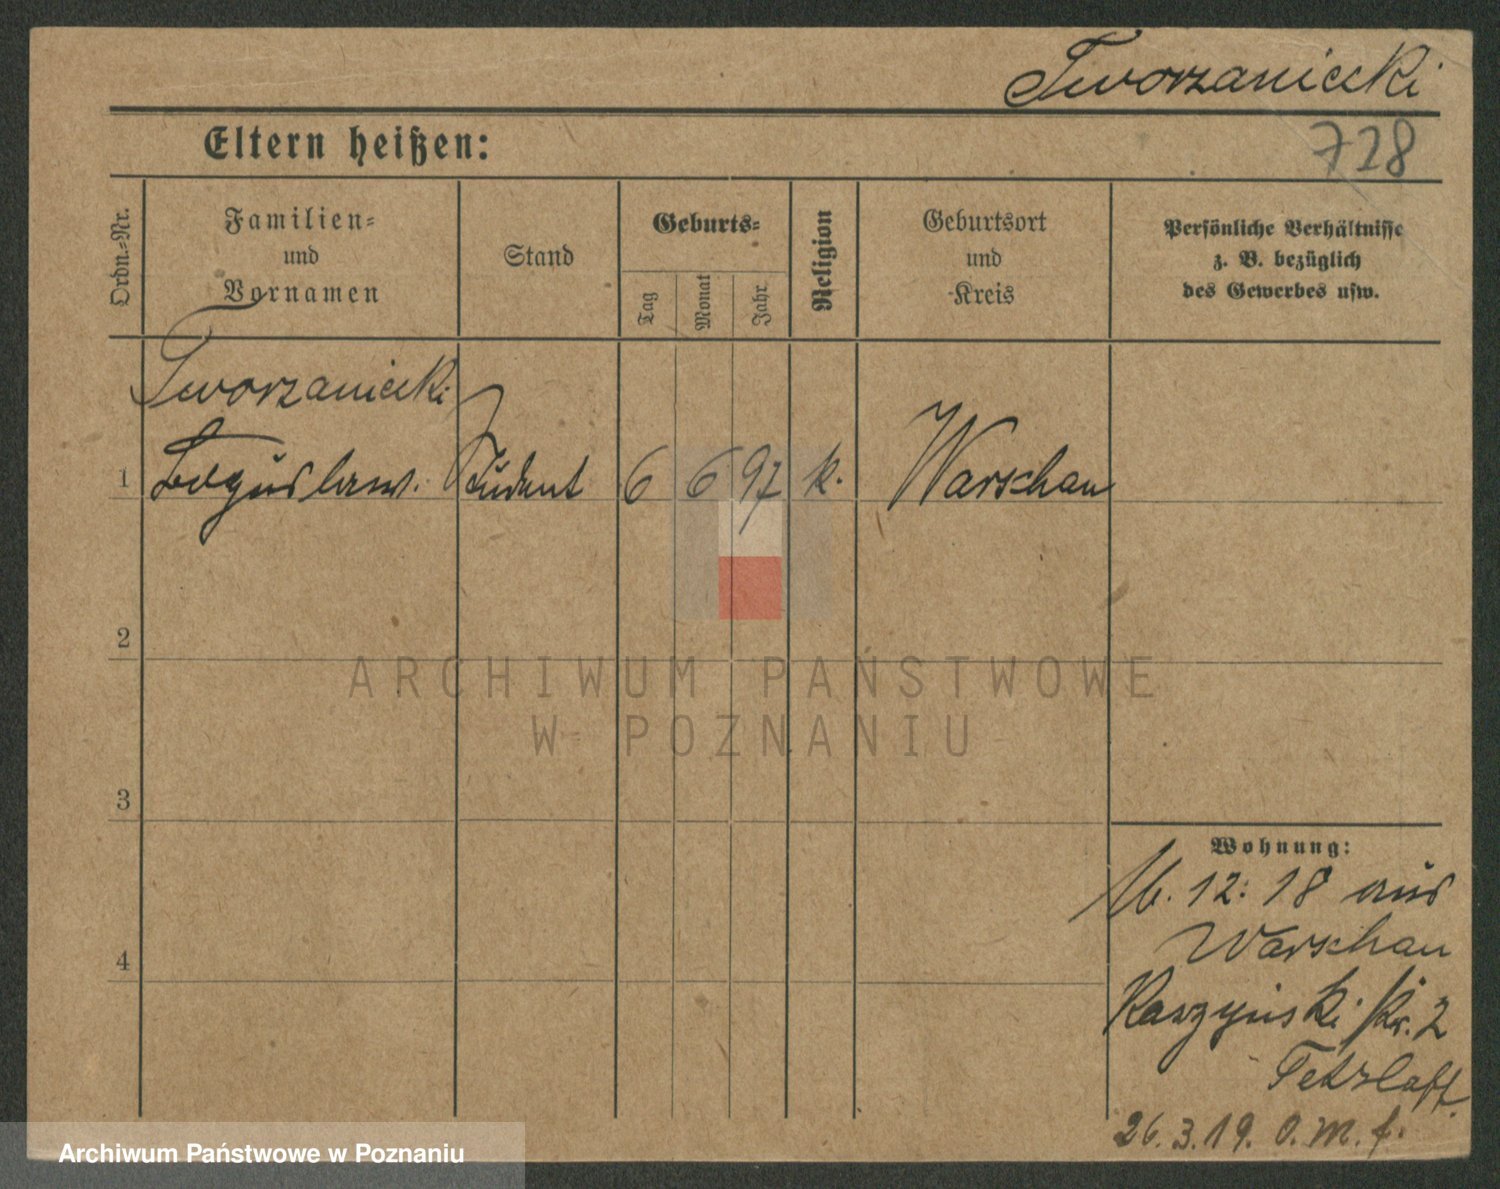 Tworzaniecki
Eltern heißen:
728
Ordn.-Nr.
Familien-
und
Vornamen
Stand
Geburts-
Tag
Monat
Jahr
Religion
Geburtsort
und
Kreis
Persönliche Verhältnisse
z. B. bezüglich
des Gewerbes usw.
Tworzaniecki
1 Boguslaw. Student 6 6 97 k. Warschau
2
ARCHIWUM PAŃSTWOWE
W POZNANIU
3
Wohnung:
16. 12. 18 aus
Warschau
4
2
Tetzlaff.
26.3.19. O. M. f.
Archiwum Państwowe w Poznaniu